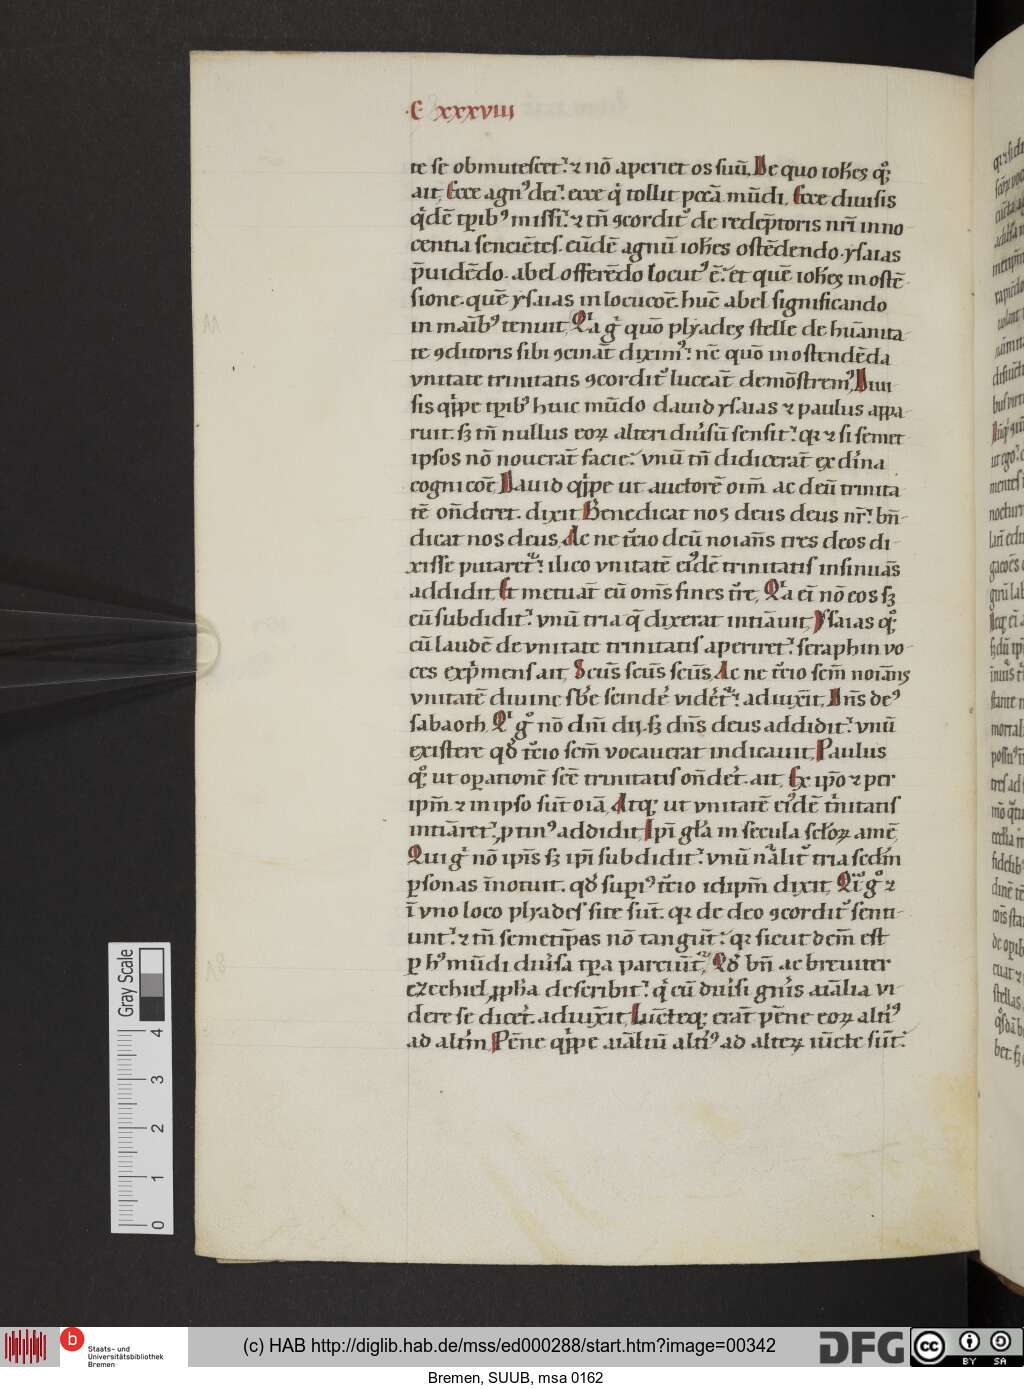 ·C· xxxviii
te se obmutescet.' ⁊ nō aperiet os suū. De quo ioħes qꝫ
ait. Ecce agnꝰ dei.' ecce q̇ tollit pccā mūdi. Ecce diuisis
q̇dē tꝑibꝰ missi.' ⁊ tn̄ ꝯcordit͛ de redēptoris nr̄i inno
centia sencientes. eūdē agnū ioħes ostēdendo. ysaias
p̄uidēdo. abel offerēdo locutꝰ ē.' et quē ioħes in ostē
sione. quē ysaias in locucōē. hūc abel significando
in manibꝰ tenuit. Qia gͥ quō plyades stelle de hūanita
te ꝯditoris sibi ꝯcināt diximꝰ.' nē quō in ostendēda
vnitate trinitatis ꝯcordit͛ luceāt demōstremꝰ. Diui
sis qi̇ppe tꝑibꝰ huic mūdo dauid ysaias ⁊ paulus appa
ruit. sꝫ tn̄ nullus eoꝝ alteri diu͛sū sensit.' qꝛ ⁊ si semet
ipsos nō nouerāt facie.' vnū tn̄ didicerāt ex dīna
cognicōē. Dauid qi̇ppe ut auctorē oīm ac deū trinita
tē on̄deret. dixit. Benedicat nos deus deus nr̄.' bn̄
dicat nos deus. Ac ne t͛cio deū noīans tres deos di
xisse putaret͛.' ilico vnitatē eiꝰdē trinitatis insinuās
addidit. Et metuāt eū om̄s fines t͛re. Qia eī nō eos sꝫ
eū subdidit.' vnū tria q̄ dixerat intīauit. ysaias qꝫ
cū laudē de vnitate trinitatis aperiret.' seraphin vo
ces exp̄mens ait. Scūs scūs scūs. Ac ne t͛cio scm̄ noīans
vnitatē diuine sb̄e scinde͛ vide͛t͛.' adiuxīt. Dn̄s deꝰ
sabaoth. Qi gͦ nō dn̄i dij. sꝫ dn̄s deus addidit.' vnū
existere qd̛ t͛cio scm̄ vocauerat indicauit. Paulus
qꝫ ut oꝑationē scē trinitatis on̄de͛t. ait. Ex ip̄o ⁊ per
ip̄m ⁊ in ipso sūt oīā. Atqꝫ ut vnitatē eiꝰdē tͥnitatis
intīaret.' ꝓtinꝰ addidit. Ipī gl̄a in secula scl̄oꝝ amē.
Qui gͥ nō ip̄is sꝫ ip̄i subdidit.' vnū nālit͛ tria scdm̄
ꝑsonas īnotuit. qd̛ suꝑiꝰ t͛cio idip̄m dixit. Qi gͦ ⁊
ī vno loco plyades site sūt. qꝛ de deo ꝯcordit͛ senti
unt.' ⁊ tn̄ semetip̄as nō tangūt.' qꝛ sicut dcm̄ est
ꝑ hꝰ mūdi diu͛sa tꝑa parciūt͛. Qd̛ bn̄ ac breuiter
ezechiel ꝓpħa describit.' q̇ cū diu͛si gn̄is aīalia vi
dere se dice͛t. adiuxīt. Iūcteqꝫ erāt pēne eoꝝ alt͛iꝰ
ad alt͛m. Pēne qi̇ppe aīaliū alt͛iꝰ ad alteꝝ iūcte sūt.'
Gray Scale
4
3
2
1
0
Staats- und
Universitätsbibliothek
Bremen
(c) HAB http://diglib.hab.de/mss/ed000288/start.htm?image=00342
DFG
cc
BY SA
Bremen, SUUB, msa 0162